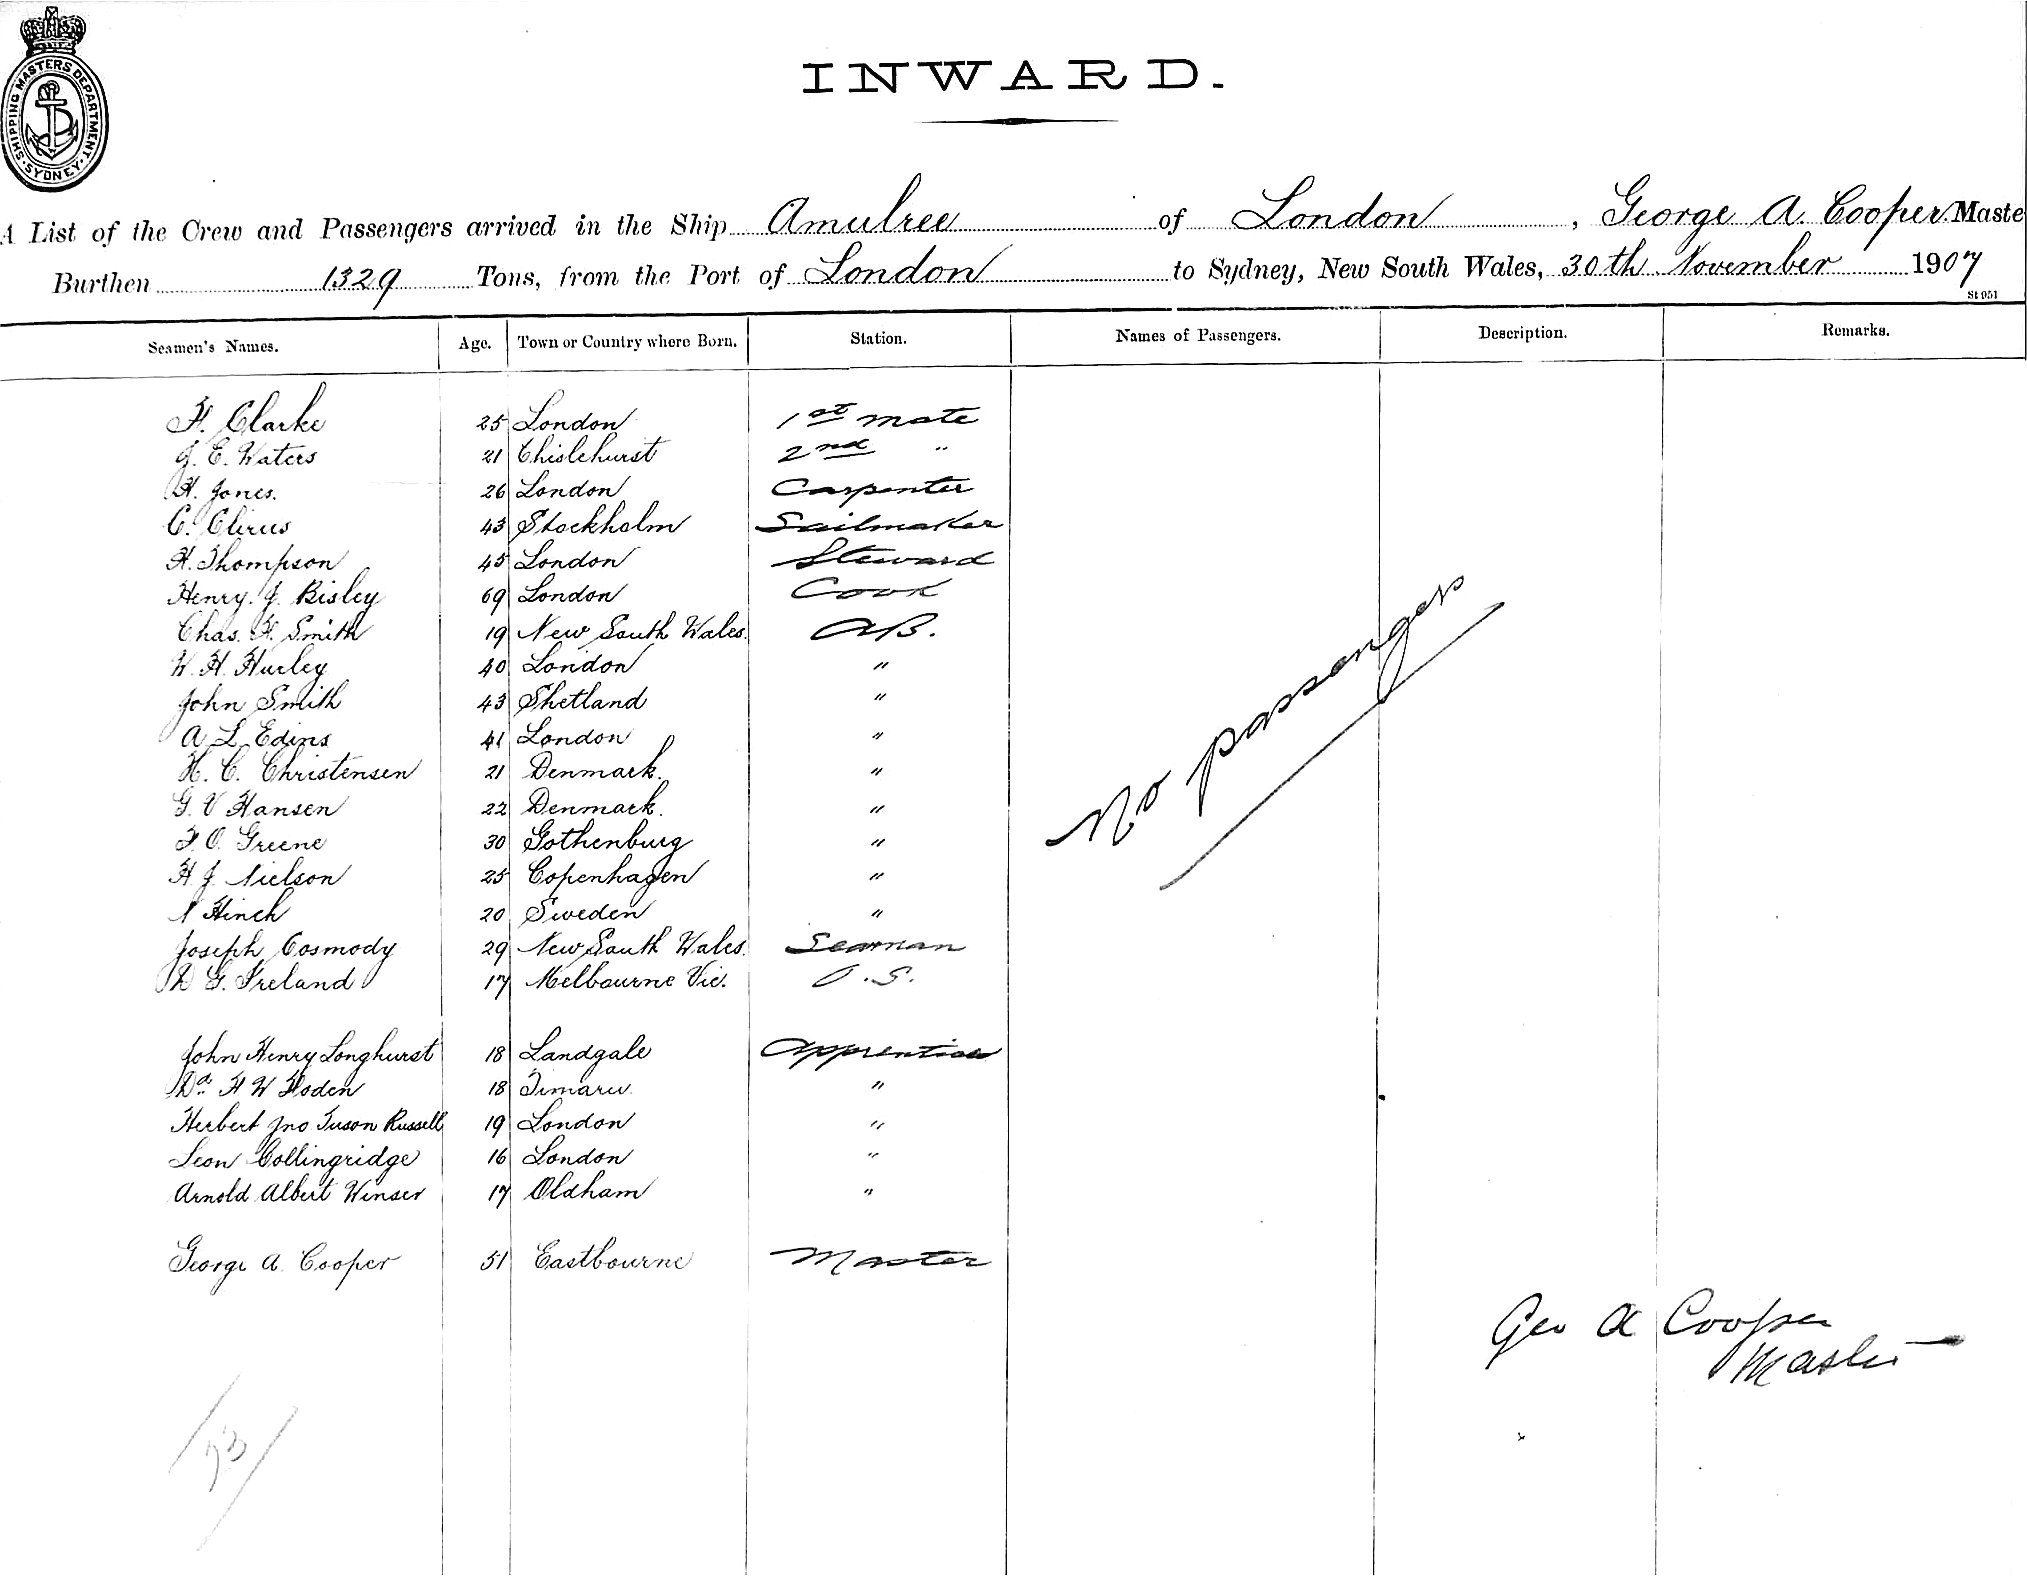 SHIPPING MASTERS DEPARTMENT. SYDNEY.
INWARD.
A List of the Crew and Passengers arrived in the Ship Amulree of London, George A. Cooper. Maste
Burthen 1329 Tons, from the Port of London to Sydney, New South Wales, 30th November 1907
St 951
Seamen's Names. Age. Town or Country where Born. Station. Names of Passengers. Description. Remarks.
H. Clarke 25 London 1st mate
J. E. Waters 21 Chislehurst 2nd "
H. Jones. 26 London Carpenter
C. Clirus 43 Stockholm Sailmaker
H. Thompson 45 London Steward
Henry. J. Bisley 69 London Cook
Chas. H. Smith 19 New South Wales. AB.
W. H. Hurley 40 London "
John Smith 43 Shetland "
A L Edins 41 London "
H. C. Christensen 21 Denmark. "
G. V Hansen 22 Denmark. "
F. O. Greene 30 Gothenburg "
H J. Nielson 25 Copenhagen "
Hinch 20 Sweden "
Joseph Cosmody 29 New South Wales. Seaman
G. Ireland 17 Melbourne Vic. O.S.
No passengers
John Henry Longhurst 18 Landgale Apprentice
H W Hoden 18 Timaru. "
Herbert Jno Tuson Russell 19 London "
Leon Collingridge 16 London "
Arnold Albert Winser 17 Oldham "
George A. Cooper 51 Eastbourne Master
Geo A Cooper
Master
/23/